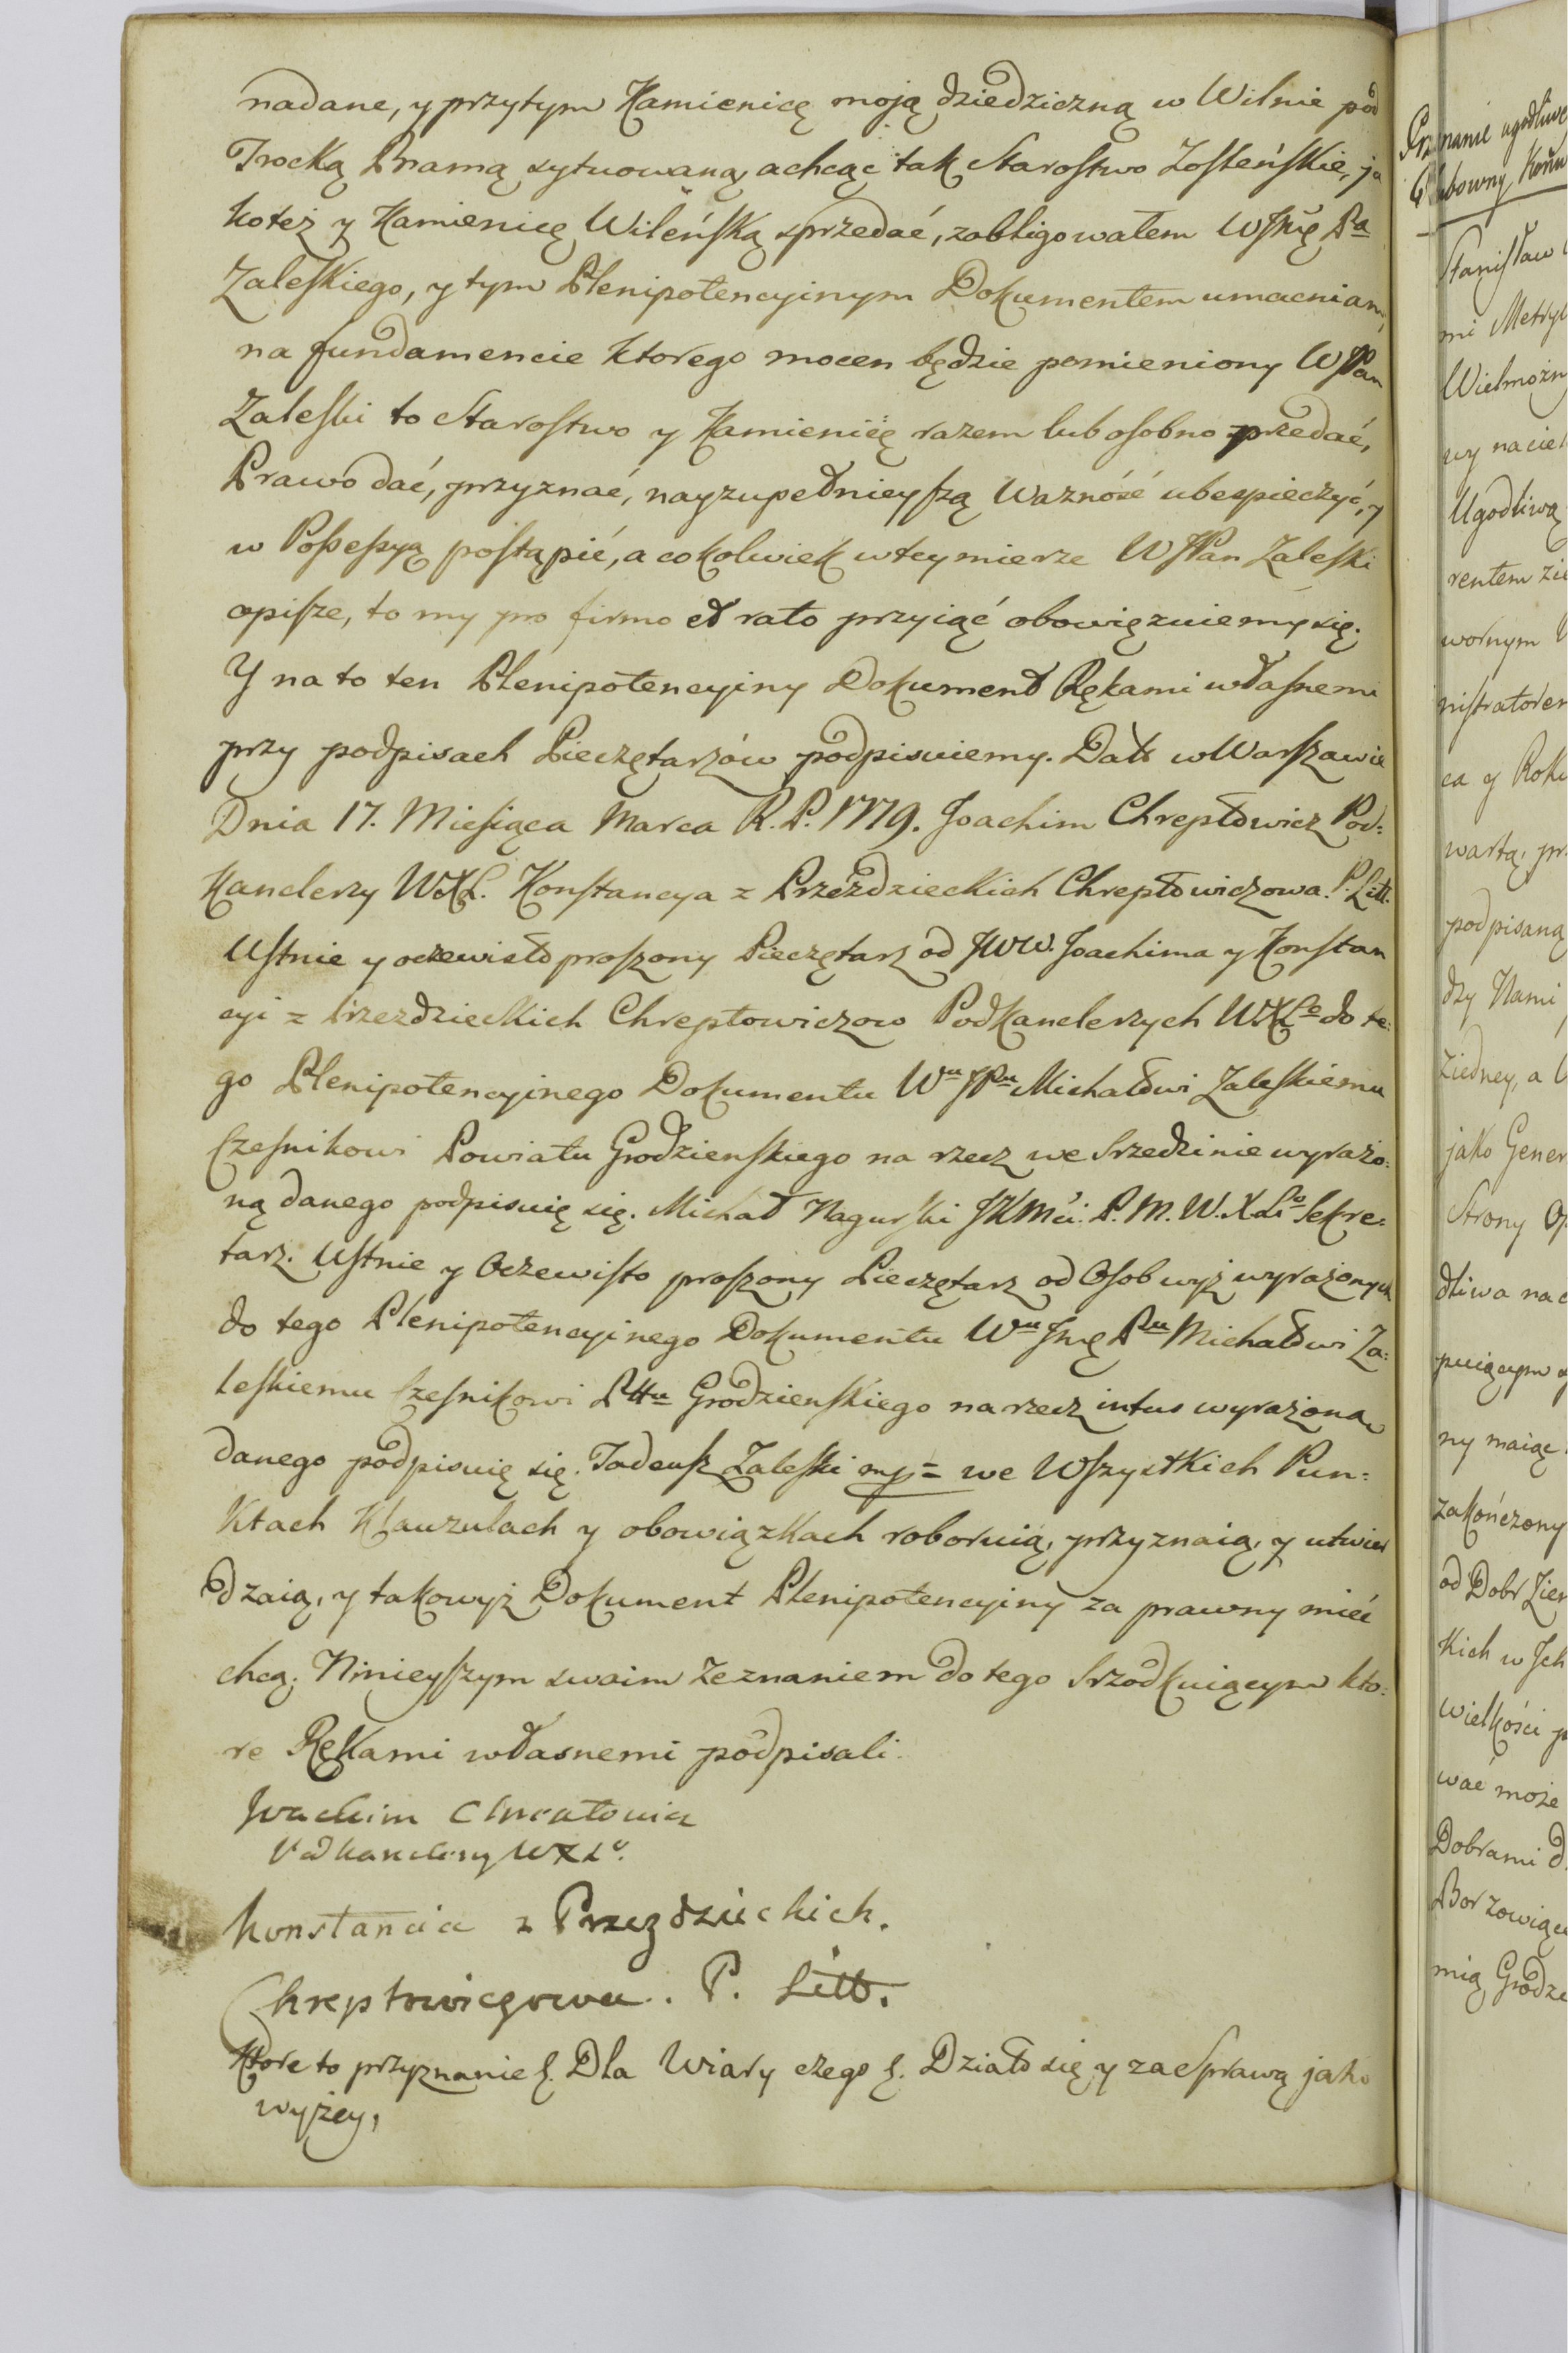 nadane, y przytym Kamienicę moją dziedziczną w Wilnie pod
Trocką Bramą sytuowaną, a chcąc tak Starostwo Zosleńskie, ja
koteż y Kamienicę Wileńską sprzedać, zobligowałem WJmę Pa
Zaleskiego, y tym Plenipotencyinym Dokumentem umacniam,
na fundamencie ktorego mocen będzie pomieniony WJPan
Zaleski to Starostwo y Kamienicę razem lub osobno przedać,
Prawo dać, przyznać, nayzupełnieyszą Wazność ubespieczyć, y
w Possessyą postąpić, a cokolwiek w tey mierze WJPan Zaleski
opisze, to my pro firmo et rato przyiąć obowięzuiemy się.
Y na to ten Plenipotencyiny Dokument Rękami własnemi
przy podpisach Pieczętarzów podpisuiemy. Datt w Warszawie
Dnia 17. Miesiąca Marca R. P. 1779. Joachim Chreptowicz Pod:
Kanclerzy WXL. Konstancya z Przezdzieckich Chreptowiczowa. P. Litt.
Ustnie y oczewisto proszony Pieczętarz od JWW. Joachima y Konstan
cyi z Przezdzieckich Chreptowiczow Podkanclerzych WXLo do te:
go Plenipotencyinego Dokumentu Wu JPu Michałowi Zaleskiemu
Czesnikowi Powiatu Grodzienskiego na rzecz we srzedzinie wyrażo:
ną danego podpisuię się. Michał Nagurski JKMci. P. M. W. X Lo Sekre:
tarz. Ustnie y Oczewisto proszony Pieczętarz od Osob wyż wyrażonych
do tego Plenipotencyinego Dokumentu Wu Jmę Pu Michałowi Za:
leskiemu Czesnikowi Pttu Grodzienskiego na rzecz intus wyrażoną
danego podpisuię się. Tadeusz Zaleski mp = we Wszystkich Pun:
Ktach Klauzulach y obowiązkach roboruią, przyznaią, y utwier
dzaią, y takowyż Dokument Plenipotencyiny za prawny mieć
chcą. Ninieyszym swoim Zeznaniem do tego srzodkuiącym kto:
re Rękami własnemi podpisali.
Joachim Chreptowicz
Podkanclerzy WXLo.
Konstancia z Przezdzieckich.
Chreptowiczowa. P. Litt.
Ktore to przyznanie &. Dla Wiary czego &. Działo się y za Sprawą jako
wyżey,
Przyznanie ugodliwę
Stanisław
mi Metryk
Wielmożn
wy naciel
Ugodliwą
rentem zie
wornym
nistratorem
ca y Roku
wartą, pr
podpisaną
dzy Nami
Ziedney, a
jako Gener
Strony Op
dliwa nad
puiącym
ny maiąc
zakończony
od Dobr Ziem
Kich w Ich
wielkości p
wać może
Dobrami d
Borzowiąc
mią Grodze